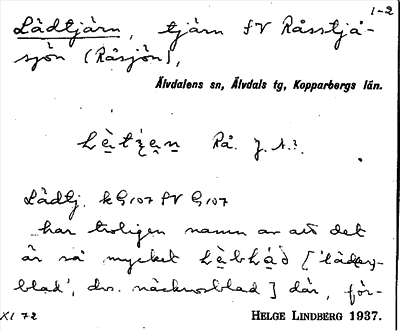 1-2
Lädtjärn, tjärn SV Råsstjå-
sjön (Råsjön),
Älvdalens sn, Älvdals tg, Kopparbergs län.
Rå. J. A.?.
Lädtj. kG107 SV G107
har troligen namn av att det
är så mycket ['läder-
blad', dvs. näckrosblad] där, för-
XI 72 HELGE LINDBERG 1937.